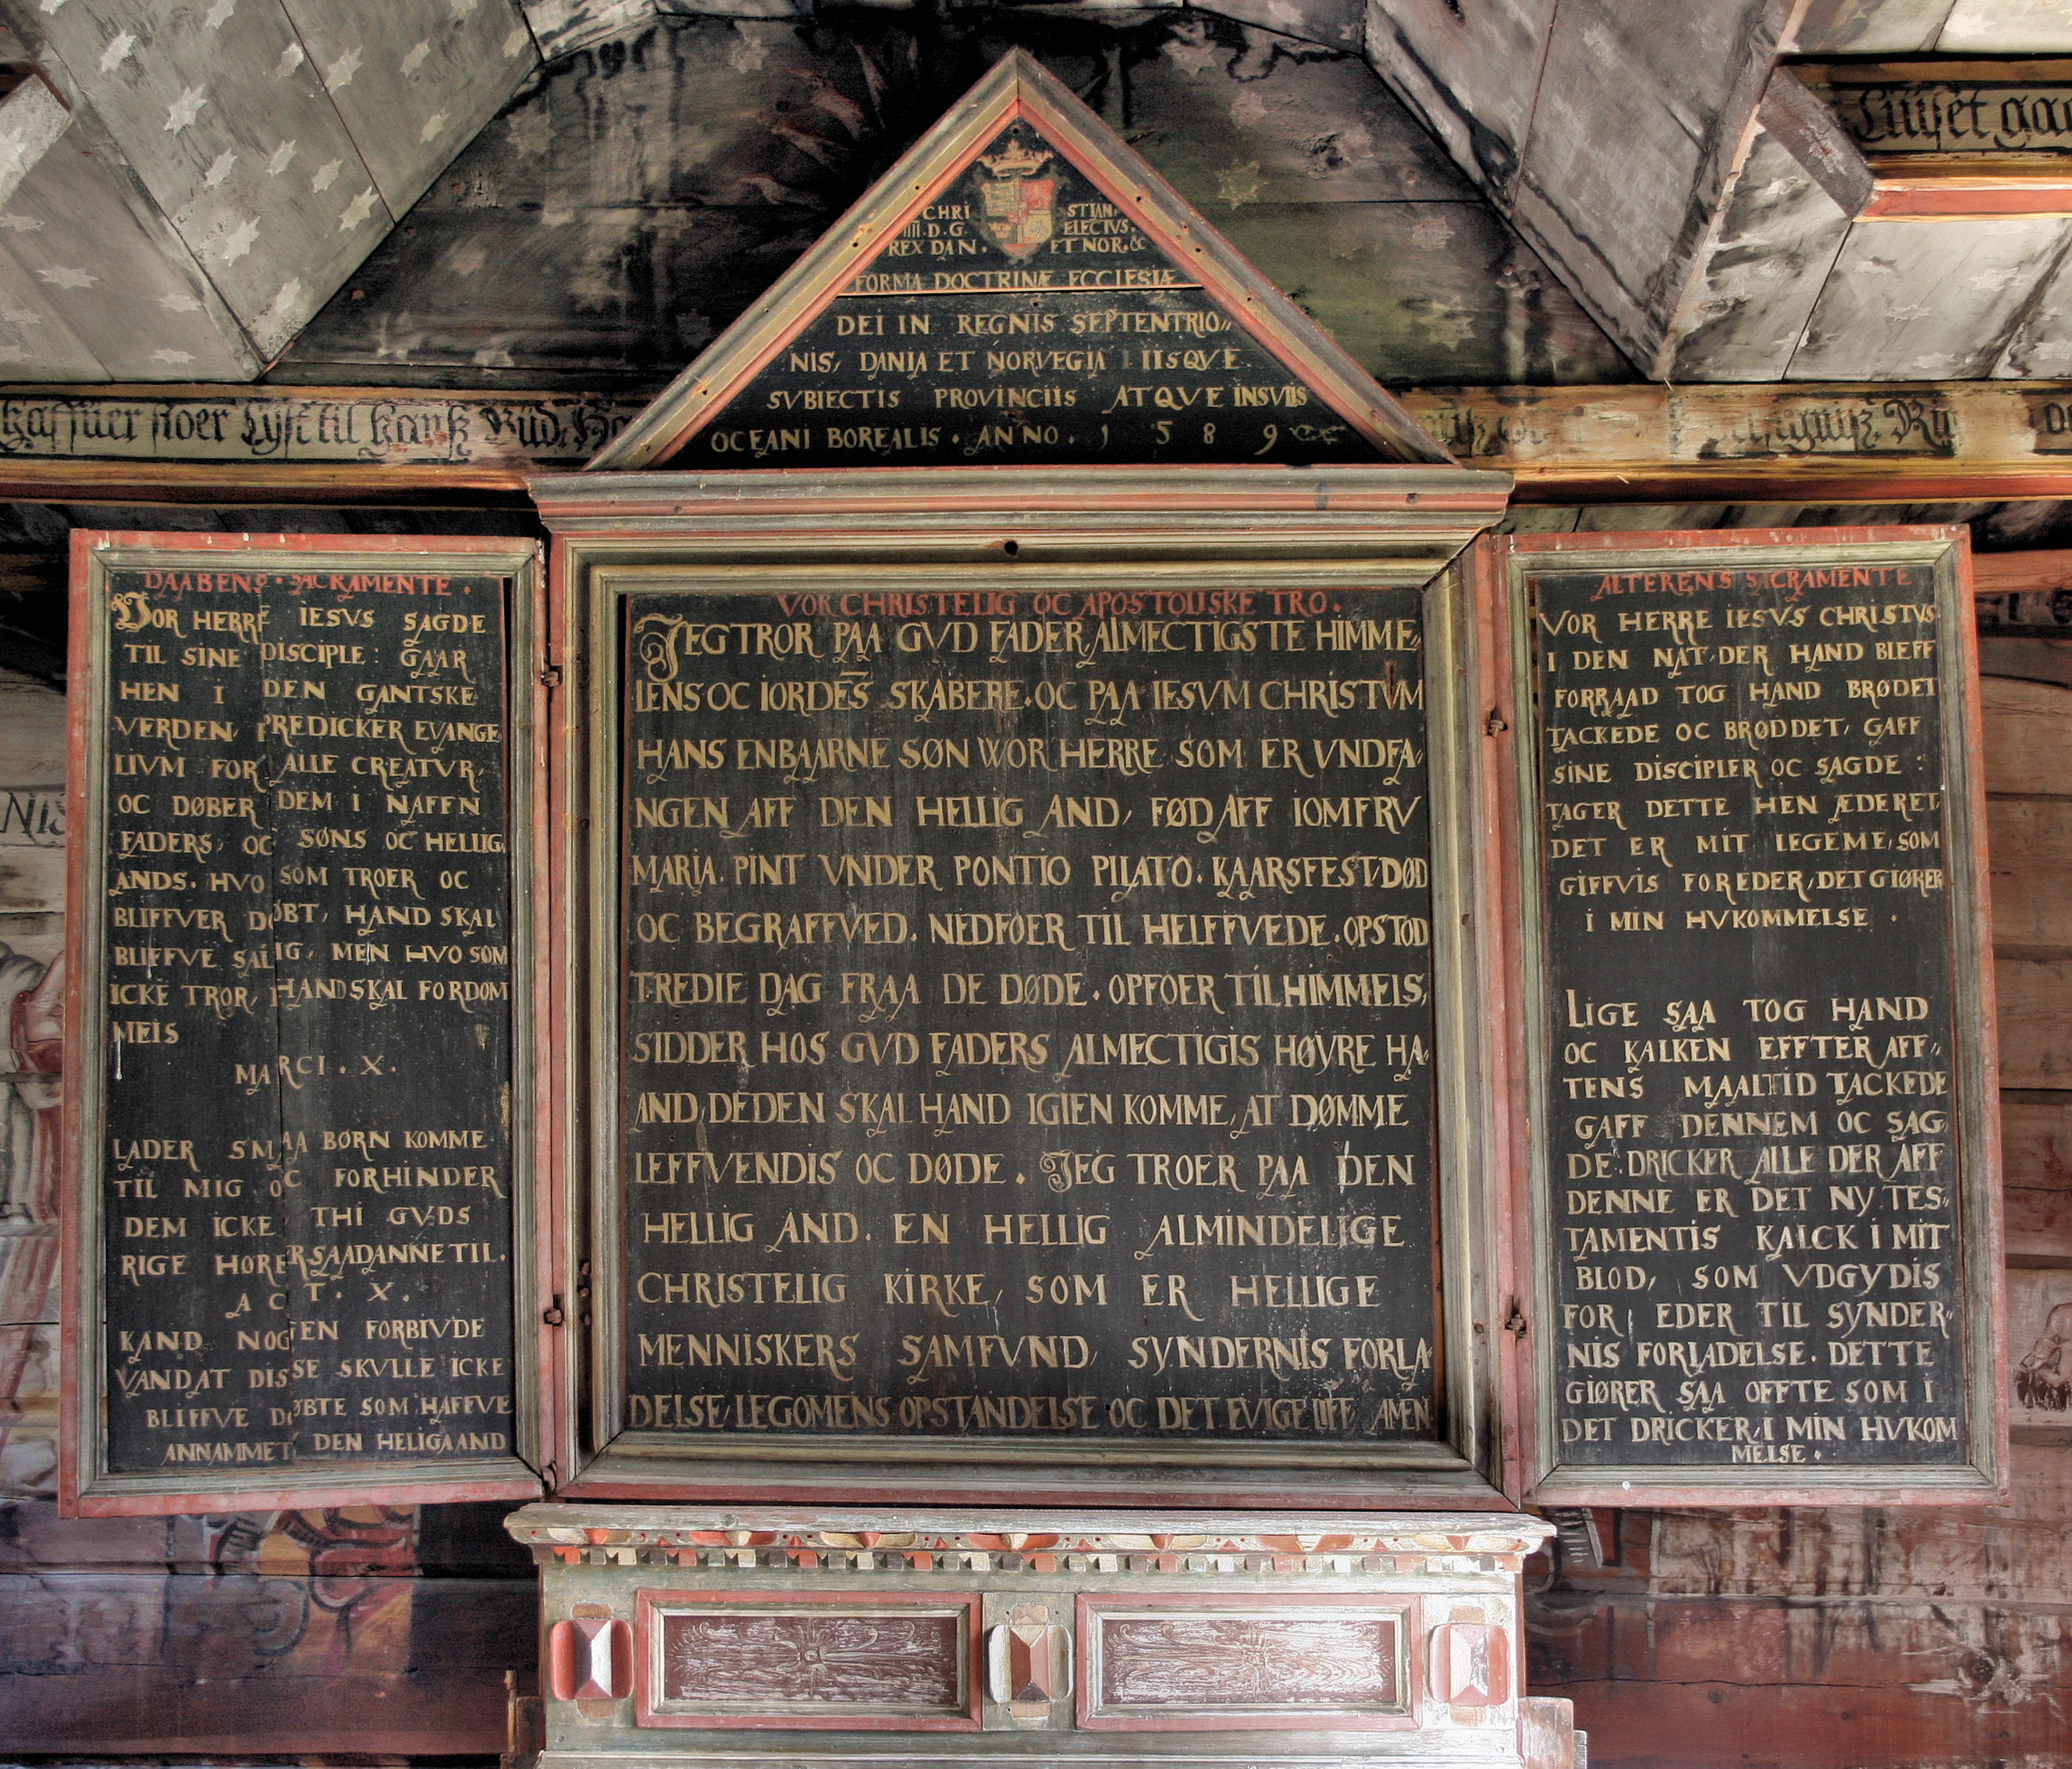 CHRI STIAN,
IIII. D. G. ELECTVS.
REX DAN. ET NOR. &
FORMA DOCTRINÆ ECCLESIÆ
DEI IN REGNIS SEPTENTRIO„
NIS, DANIA ET NORVEGIA IIISQVE.
SVBIECTIS PROVINCIIS ATQVE INSVLIS
OCEANI BOREALIS. ANNO. 1589
til
DAABENS. SACRAMENTE.
VOR HERRE IESVS SAGDE
TIL SINE DISCIPLE: GAAR
HEN I DEN GANTSKE
VERDEN, PREDICKER EVANGE
LIVM FOR ALLE CREATVR,
OC DØBER DEM I NAFFN
FADERS, OC SØNS OC HELLIG
ANDS. HVO SOM TROER OC
BLIFFVER DØBT, HAND SKAL
BLIFFVE SALIG, MEN HVO SOM
ICKE TROR, HAND SKAL FORDOM
MEIS
MARCI. X.
LADER SMAA BØRN KOMME
TIL MIG OC FORHINDER
DEM ICKE THI GVDS
RIGE HØRER SAADANNE TIL.
ACT. X.
KAND NOGEN FORBIVDE
VAND AT DISSE SKVLLE ICKE
BLIFFVE DØBTE SOM HAFFVE
ANNAMMET DEN HELIGAAND
VOR CHRISTELIG OC APOSTOLISKE TRO.
JEG TROR PAA GVD FADER, ALMECTIGSTE HIMME„
LENS OC IORDĒS SKABERE. OC PAA IESVM CHRISTVM
HANS ENBAARNE SØN WOR HERRE SOM ER VNDFA„
NGEN AFF DEN HELLIG AND, FØD AFF IOMFRV
MARIA. PINT VNDER PONTIO PILATO. KAARSFEST, DØD
OC BEGRAFFVED. NEDFOER TIL HELFFVEDE. OPSTOD
TREDIE DAG FRAA DE DØDE. OPFOER TIL HIMMELS,
SIDDER HOS GVD FADERS ALMECTIGIS HØYRE HA„
AND, DEDEN SKAL HAND IGIEN KOMME, AT DØMME
LEFFVENDIS OC DØDE. JEG TROER PAA DEN
HELLIG AND. EN HELLIG ALMINDELIGE
CHRISTELIG KIRKE, SOM ER HELLIGE
MENNISKERS SAMFVND, SYNDERNIS FORLA„
DELSE, LEGOMENS OPSTANDELSE OC DET EVIGE LIFF AMEN.
ALTERENS SACRAMENTE
VOR HERRE IESVS CHRISTVS.
I DEN NAT, DER HAND BLEFF
FORRAAD TOG HAND BRØDET
TACKEDE OC BRØDDET, GAFF
SINE DISCIPLER OC SAGDE:
TAGER DETTE HEN ÆDERET,
DET ER MIT LEGEME, SOM
GIFFVIS FOR EDER, DET GIØRER
I MIN HVKOMMELSE.
LIGE SAA TOG HAND
OC KALKEN EFFTER AFF„
TENS MAALTID TACKEDE
GAFF DENNEM OC SAG„
DE. DRICKER ALLE DER AFF
DENNE ER DET NY TES„
TAMENTIS KALCK I MIT
BLOD, SOM VDGYDIS
FOR EDER TIL SYNDER„
NIS FORLADELSE. DETTE
GIØRER SAA OFFTE SOM I
DET DRICKER, I MIN HVKOM
MELSE.